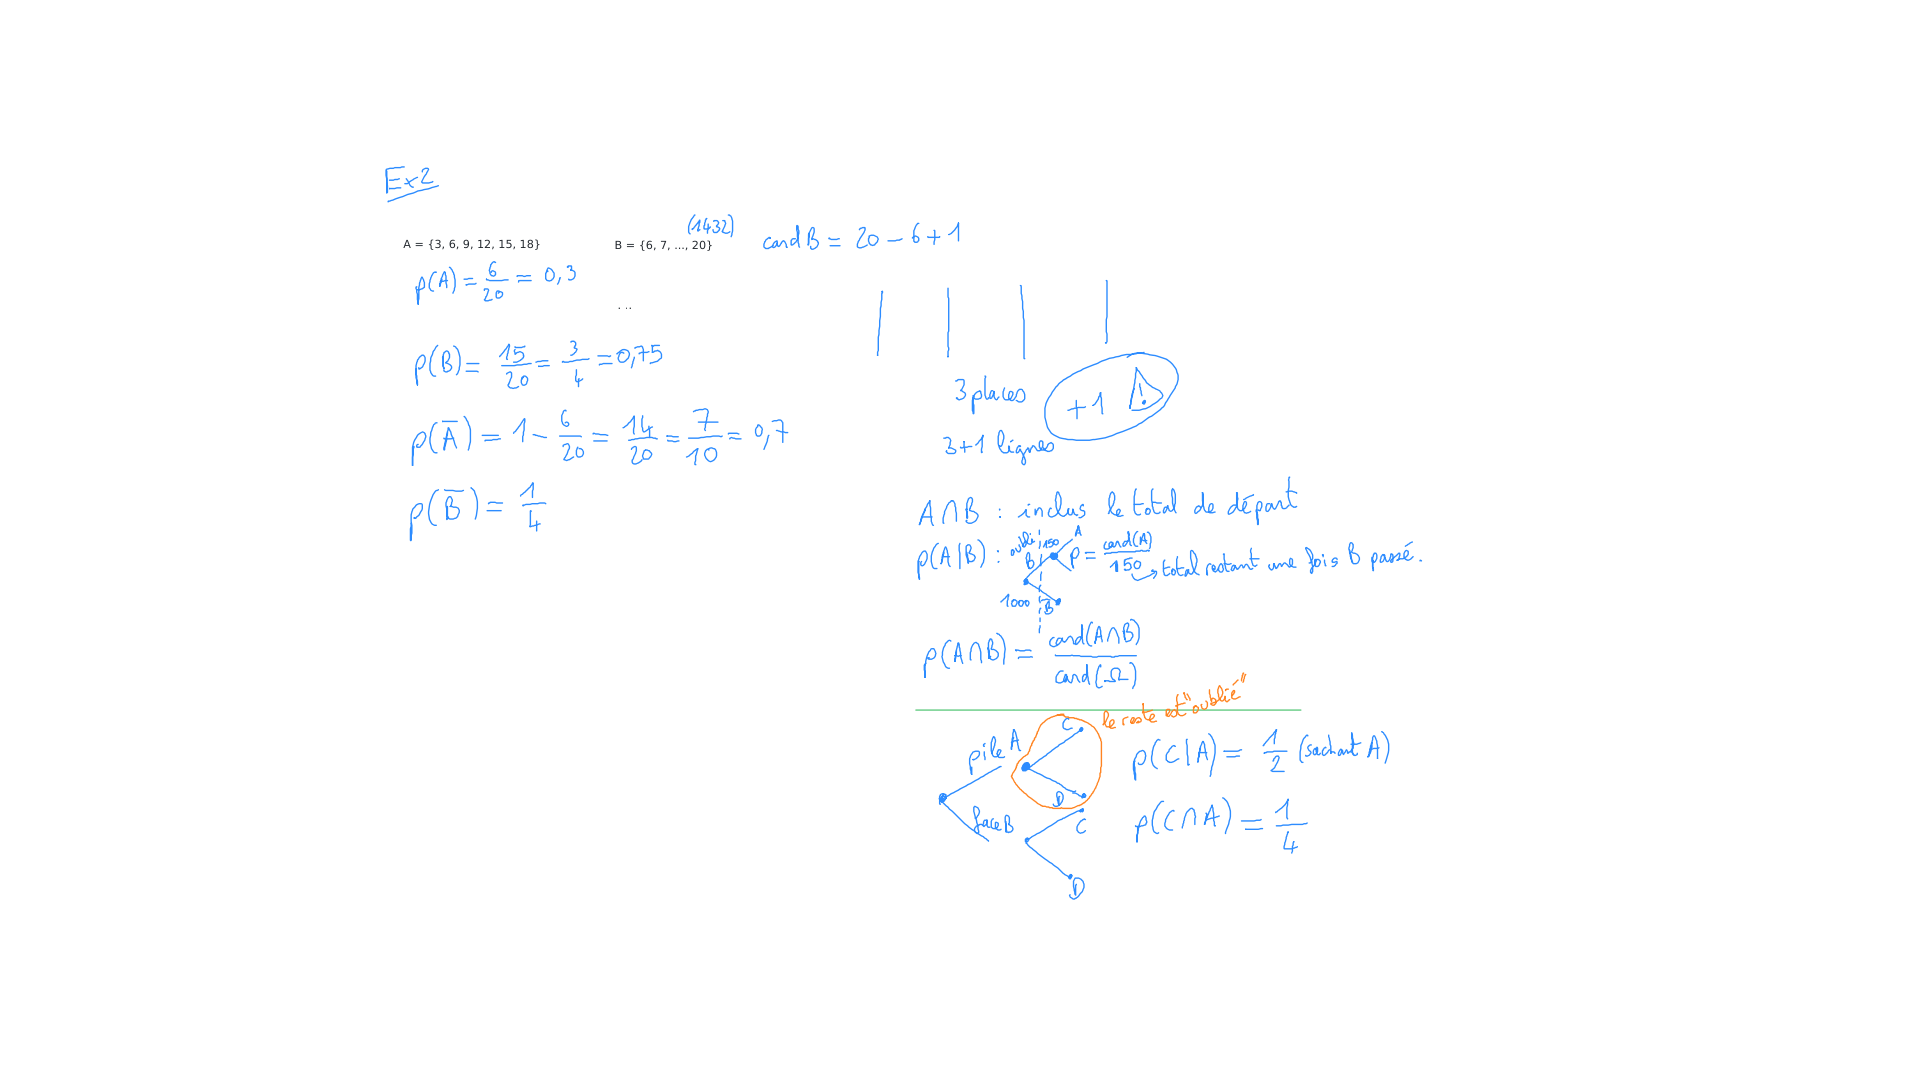 Ex2
(1432)
A = {3, 6, 9, 12, 15, 18}
B = {6, 7, ..., 20}
card B = 20 - 6 + 1
p(A) = 6/20 = 0,3
. ..
p(B) = 15/20 = 3/4 = 0,75
p(A̅) = 1 - 6/20 = 14/20 = 7/10 = 0,7
p(B̅) = 1/4
3 places
+1 !
3+1 lignes
A∩B : inclus le total de départ
p(A|B) :
oubli
150
A
B
p = card(A)/150 → total restant une fois B passé.
1000
B̅
p(A∩B) = card(A∩B)/card(Ω)
le reste est "oublié"
pile A
C
D
p(C|A) = 1/2 (sachant A)
face B
C
D
p(C∩A) = 1/4